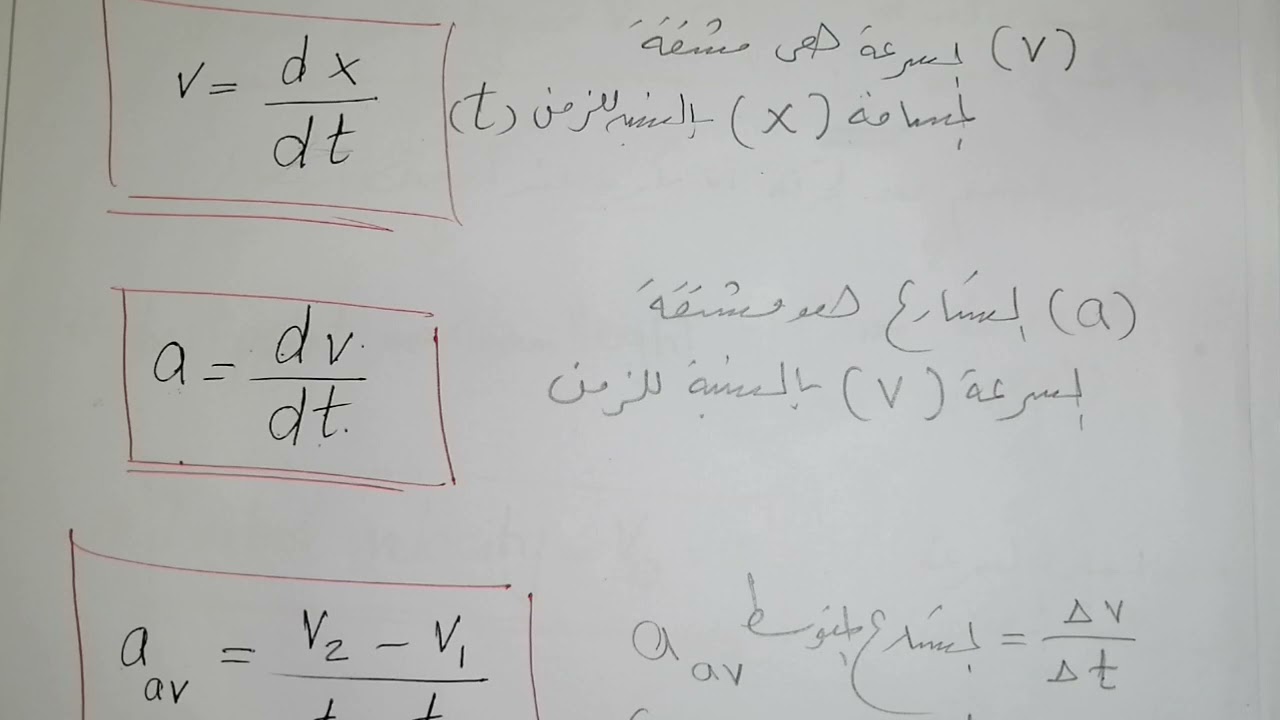 v = dx/dt
(v) السرعة هي مشتقة
المسافة (x) بالنسبة للزمن (t)
a = dv/dt
(a) التسارع هو مشتقة
السرعة (v) بالنسبة للزمن
a av = V2 − V1
a av التسارع المتوسط = Δv/Δt